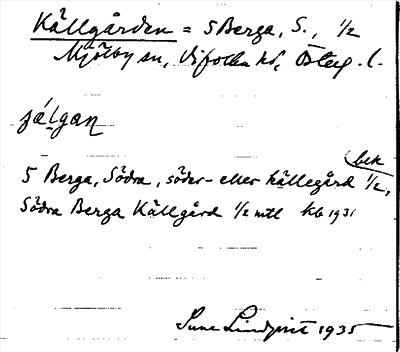 Källgården = 5 Berga, S., 1/2
Mjölby sn, Vifolka hd, Österg. l.
jálgan
bek
5 Berga, Södra, söder- eller källegård 1/2,
Södra Berga Källgård 1/2 mtl kb 1931
Sune Lindqvist 1935